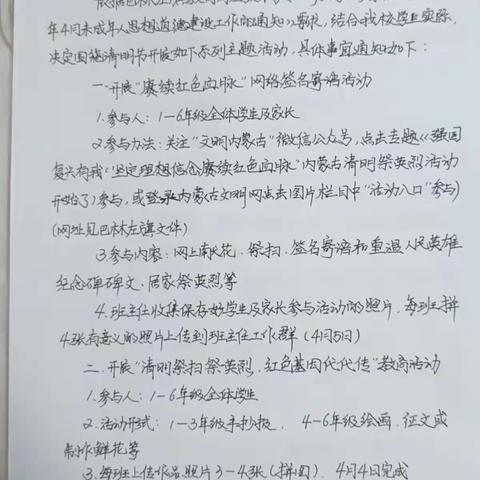 年4月未成年人思想道德建设工作的通知》要求，结合我校学生实际，
决定围绕清明节开展如下系列主题活动，具体事宜通知如下：
一、开展“赓续红色血脉”网络签名寄语活动
1.参与人：1-6年级全体学生及家长
2.参与办法：关注“文明内蒙古”微信公众号，点击专题《强国
复兴有我《坚定理想信念赓续红色血脉”内蒙古清明祭英烈活动
开始了》参与，或登录内蒙古文明网点击图片栏目中“活动入口”参与）
(网址见巴林左旗文件）
3.参与内容：网上献花、祭扫、签名寄语和重温人民英雄
纪念碑碑文、居家祭英烈等
4.班主任收集保存好学生及家长参与活动的照片，每班拼
4张有意义的照片上传到班主任工作群（4月5日）
二、开展“清明祭扫祭英烈，红色基因代代传”教育活动
1.参与人：1-6年级全体学生
2.活动形式：1-3年级手抄报、4-6年级绘画、征文或
制作鲜花等
3.每班上传作品照片3-4张（拼图），4月4日完成